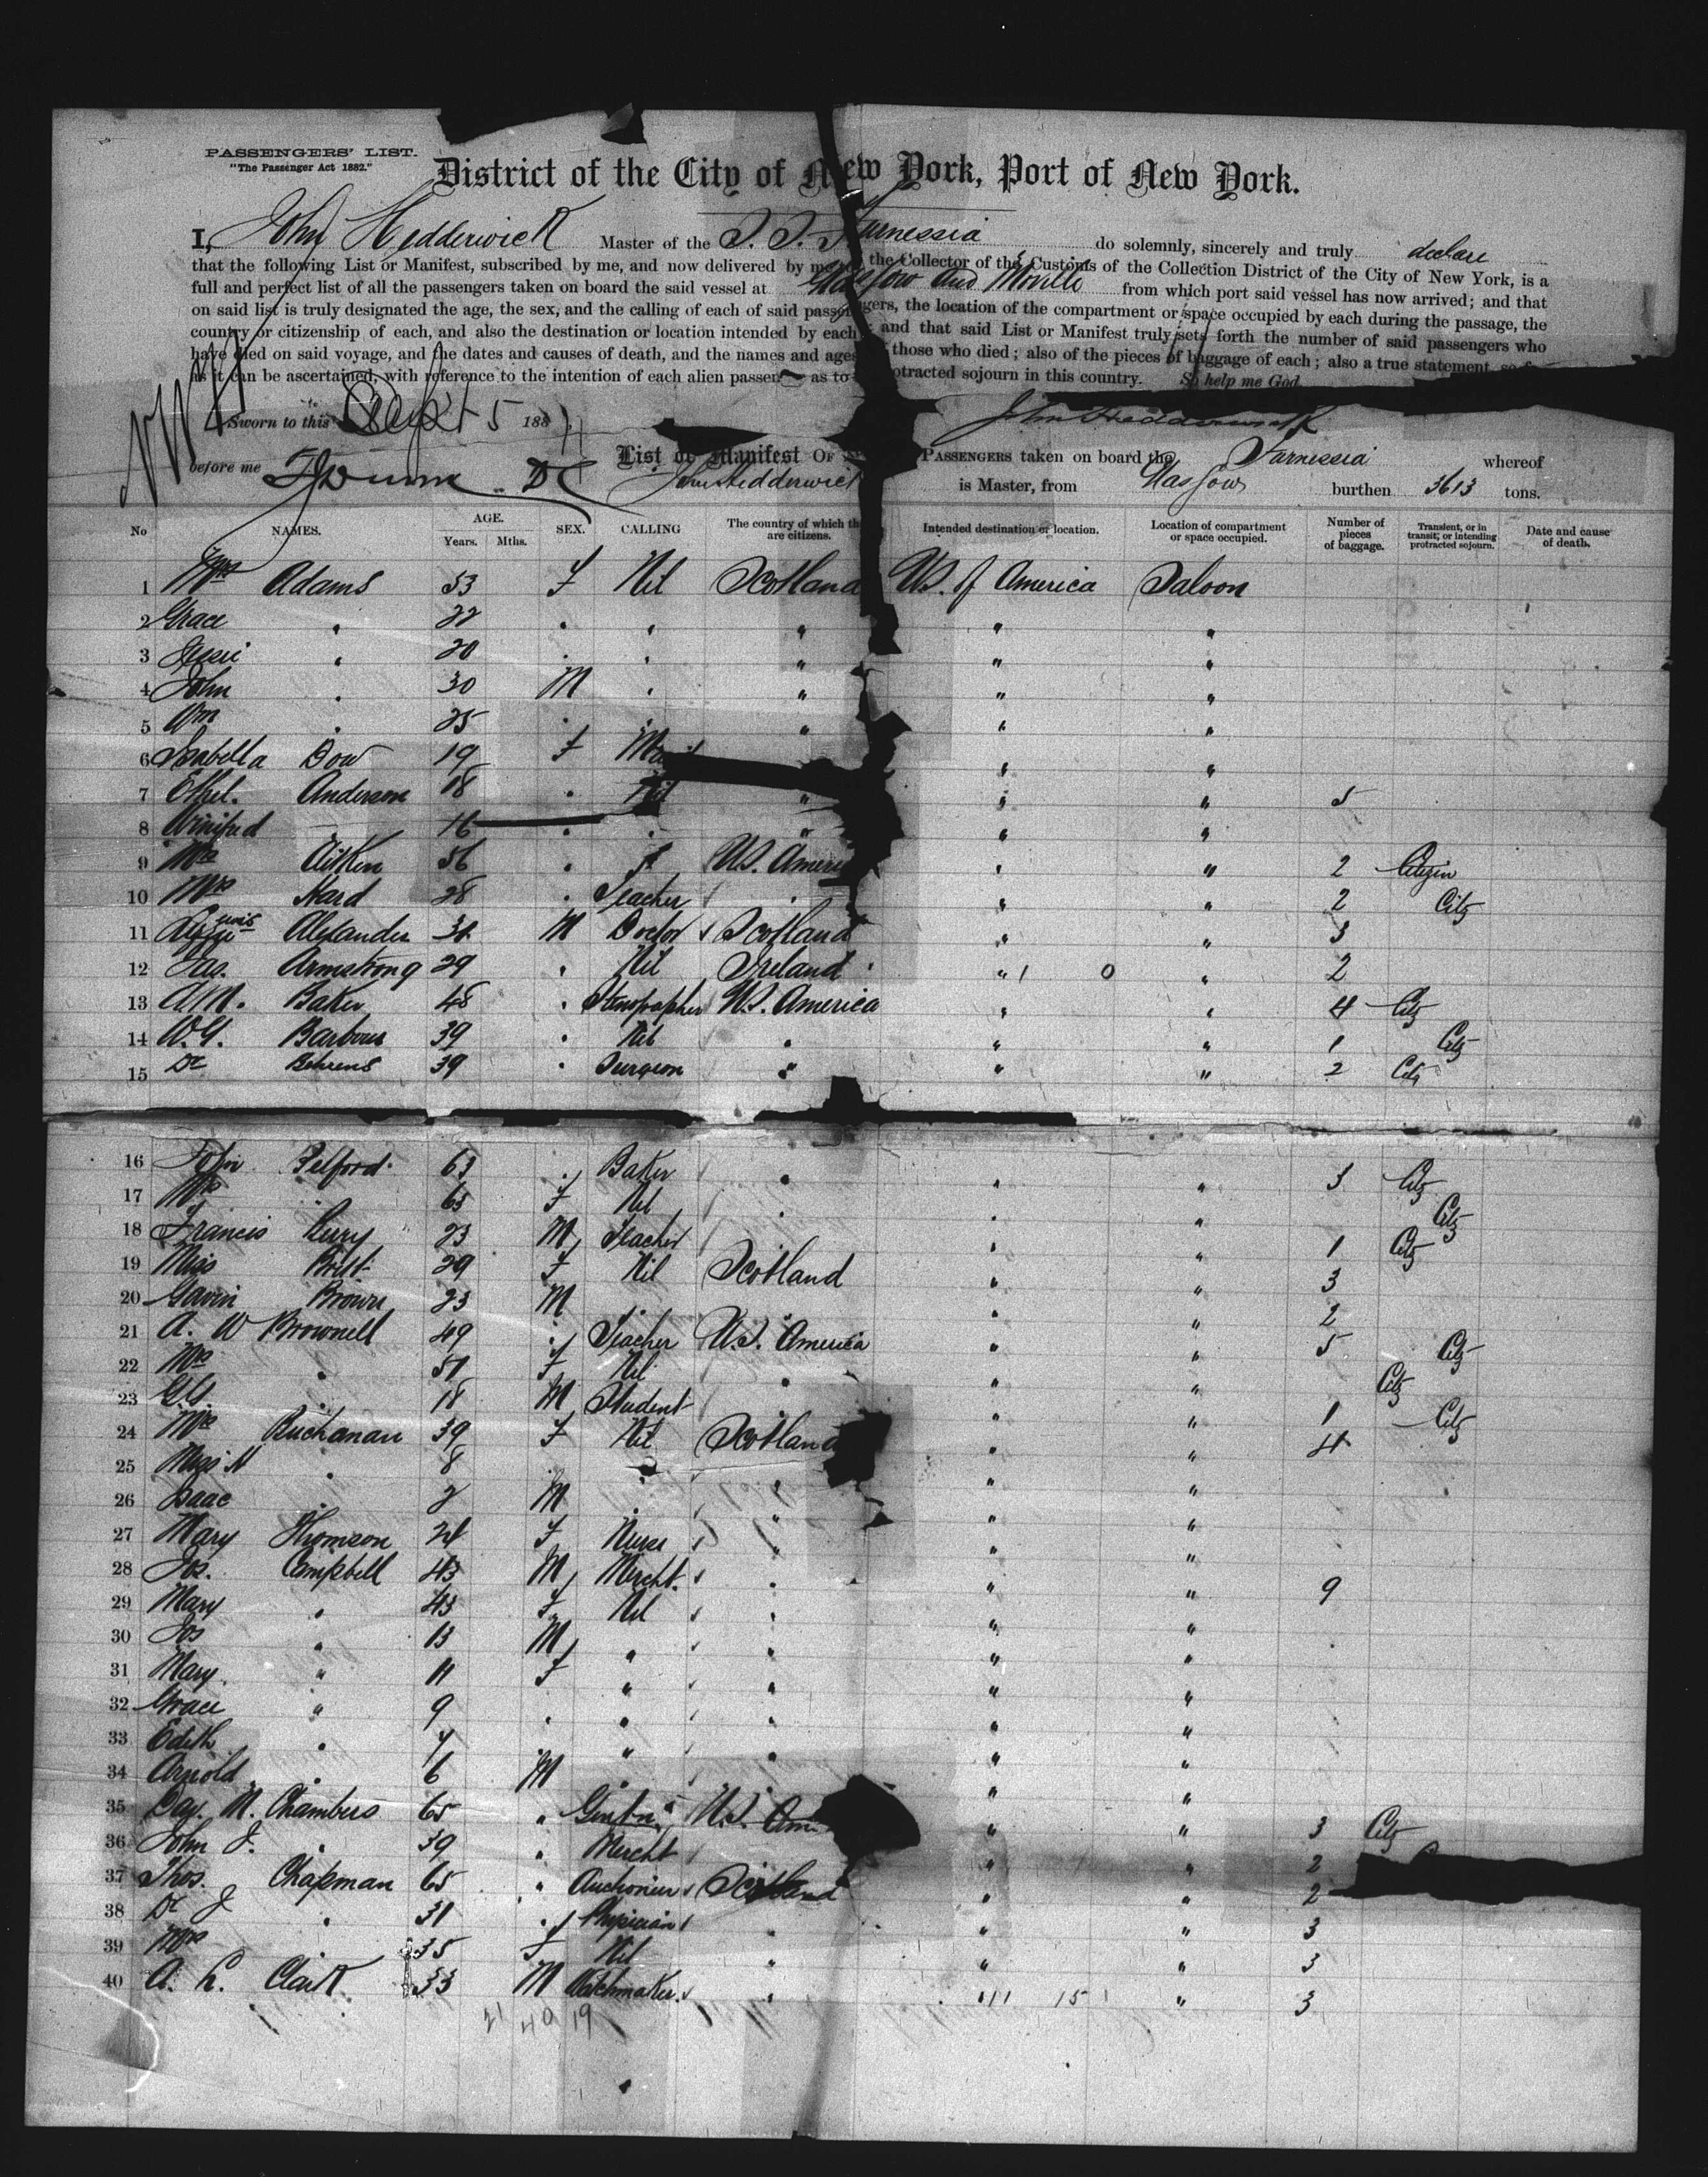 PASSENGERS' LIST.
"The Passenger Act 1882."
District of the City of New York, Port of New York.
I, John Hedderwick Master of the S. S. Furnessia do solemnly, sincerely and truly declare
that the following List or Manifest, subscribed by me, and now delivered by me to the Collector of the Customs of the Collection District of the City of New York, is a
full and perfect list of all the passengers taken on board the said vessel at Glasgow and Moville from which port said vessel has now arrived; and that
on said list is truly designated the age, the sex, and the calling of each of said passengers, the location of the compartment or space occupied by each during the passage, the
country or citizenship of each, and also the destination or location intended by each and that said List or Manifest truly sets forth the number of said passengers who
have died on said voyage, and the dates and causes of death, and the names and ages those who died; also of the pieces of baggage of each; also a true statement, so
as it can be ascertained, with reference to the intention of each alien passen as to protracted sojourn in this country. So help me God
Sworn to this Sept 5 188 John Hedderwick
before me
List or Manifest OF PASSENGERS taken on board the Furnessia whereof
John Hedderwick is Master, from Glasgow burthen 3613 tons.
No NAMES. AGE. Years. Mths. SEX. CALLING The country of which th are citizens. Intended destination or location. Location of compartment or space occupied. Number of pieces of baggage. Transient, or in transit, or intending protracted sojourn. Date and cause of death.
1 Mrs Adams 53 F Nil Scotland U.S. of America Saloon
2 Grace " 22 " " " " "
3 Jessie " 20 " " " " "
4 John " 30 M " " " "
5 Wm " 25 " " " "
6 Isabella Dow 19 F " "
7 Ethel. Anderson 18 " Nil " " " 5
8 Winifred 16 " " " " "
9 Mrs Aitken 56 " " U.S. Ameri " " 2 Citizen
10 Mrs Hard 28 " Teacher " " " 2 Citz
11 Lewis Alexander 31 M Doctor Scotland " " 3
12 Jas. Armstrong 29 " Nil Ireland " " 2
13 A.M. Baker 48 " Stenographer U.S. America " " 4 Citz
14 W.G. Barbour 39 " Nil " " " 1 Citz
15 Dr Behrens 39 " Surgeon " " " 2 Citz
16 John Belford 63 " Baker " " " 3 Citz
17 Mrs " 65 F Nil " " " Citz
18 Francis Berry 23 M Teacher " " 1 Citz
19 Miss 29 F Nil Scotland " " 3
20 Gavin Brown 23 M " " " " 2
21 A. W Brownell 49 " Teacher U.S. America " " 5 Citz
22 Mrs " 51 F Nil " " " Citz
23 G.S. " 18 M Student " " 1 Citz
24 Mrs Buchanan 39 F Nil Scotland " " 4
25 Miss N " 8 " " " " "
26 Isaac " 2 M " " " "
27 Mary Thomson 24 F Nurse " " "
28 Jos. Campbell 43 M Mercht. " " " 9
29 Mary " 43 F Nil " " "
30 Jos " 13 M " " " "
31 Mary " 11 F " " " "
32 Grace " 9 " " " " "
33 Edith " 7 " " " " "
34 Arnold " 6 M " " "
35 Dav. M. Chambers 65 " Gentn. U.S. Am " " 3 Citz
36 John J. " 39 " Mercht " " 2
37 Thos. Chapman 65 " Auctionier Scotland " " 2
38 Dr J " 31 " Physician " " " 3
39 Mrs 35 F Nil " " " 3
40 A. L. Clark 33 M Watchmaker " " " 3
21 40 19